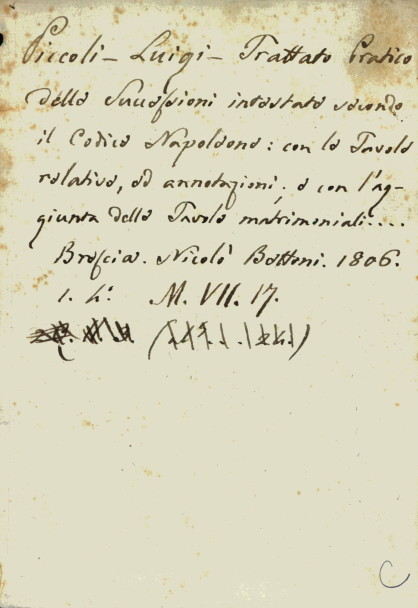 Piccoli - Luigi - Trattato Pratico
delle Successioni intestate secondo
il Codice Napoleone: con le Tavole
relative, ed annotazioni: e con l'ag-
giunta delle Tavole matrimoniali....
Brescia. Nicolò Bettoni. 1806.
1. 4º. M. VII. 17.
C